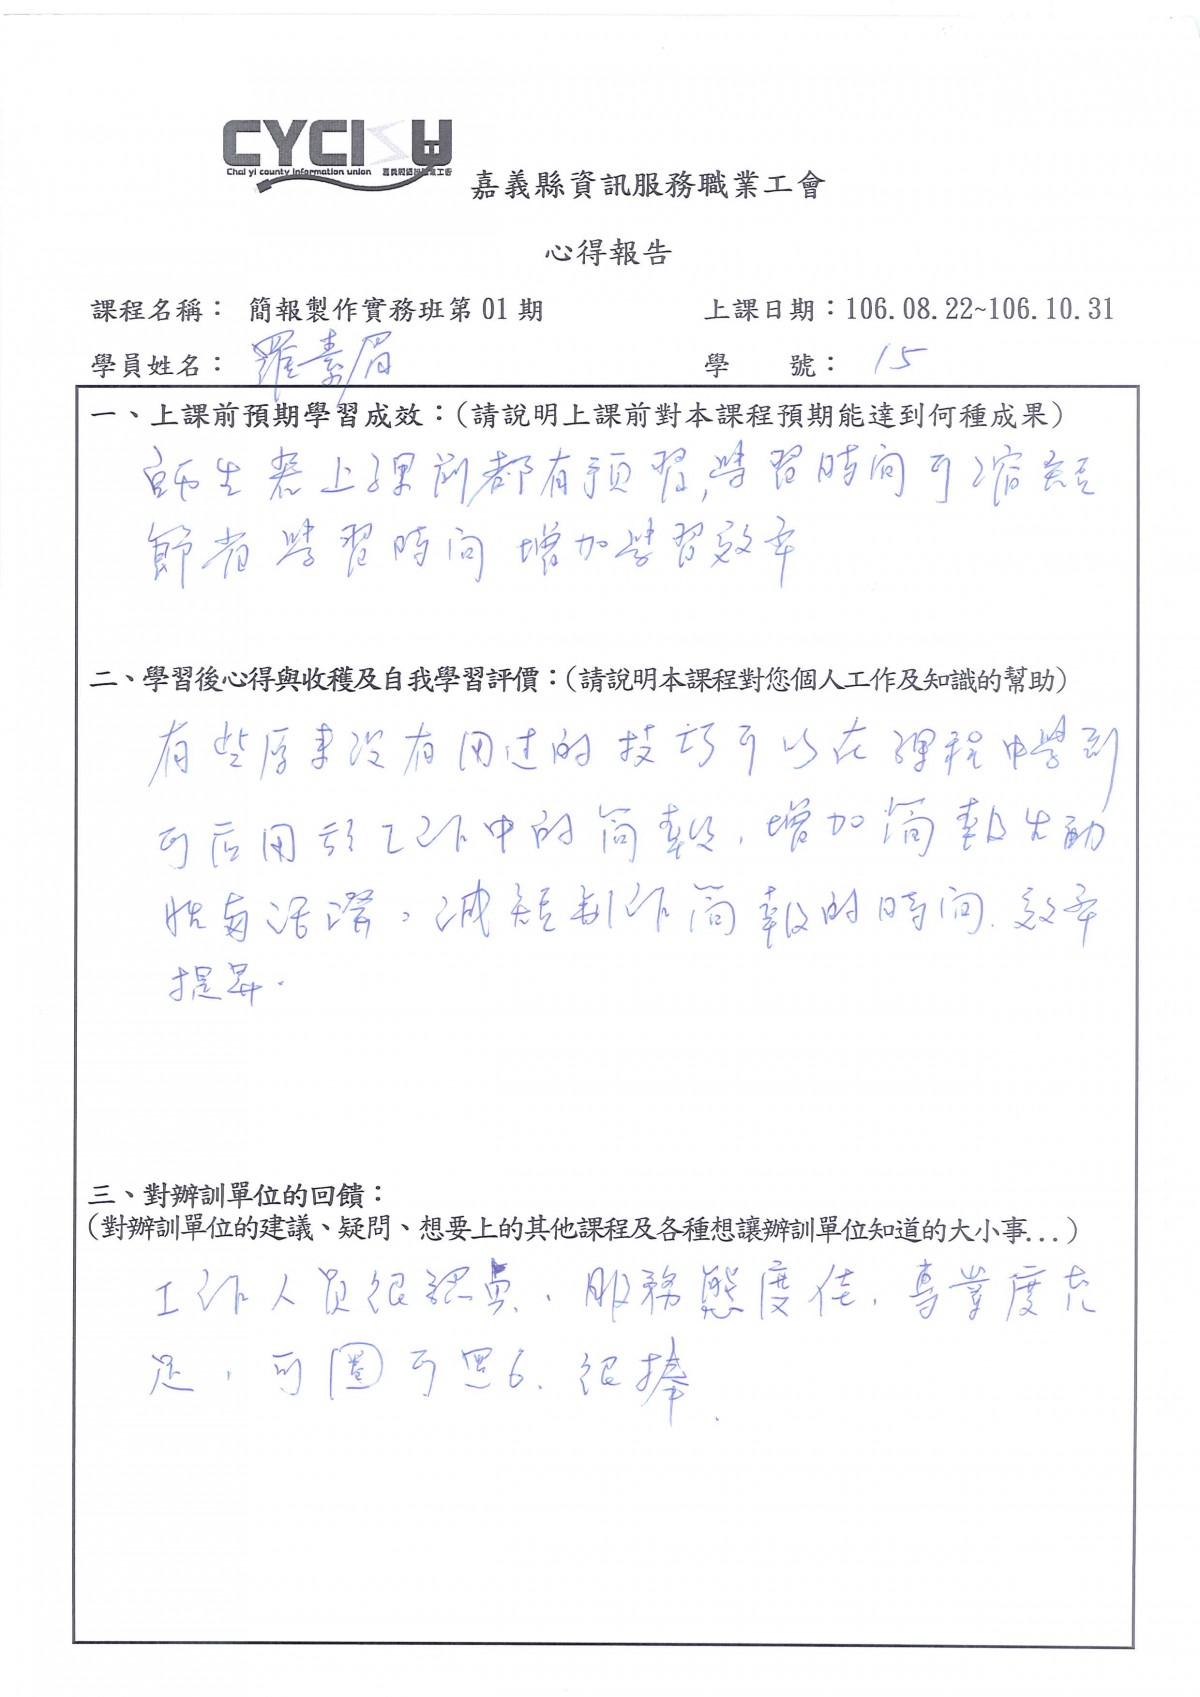 CYCISU
Chai yi county information union 嘉義縣資訊職業工會
嘉義縣資訊服務職業工會
心得報告
課程名稱： 簡報製作實務班第 01 期 上課日期：106.08.22~106.10.31
學員姓名： 羅素眉 學 號： 15
一、上課前預期學習成效：（請說明上課前對本課程預期能達到何種成果）
上課前都有預習,學習時間可縮短
節省學習時間 增加學習效率
二、學習後心得與收穫及自我學習評價：（請說明本課程對您個人工作及知識的幫助）
有些原來沒有用过的技巧可以在課程中學到
可应用于工作中的简報，增加簡報生動
活潑，減短制作简報的時间.效率
提昇.
三、對辦訓單位的回饋：
（對辦訓單位的建議、疑問、想要上的其他課程及各種想讓辦訓單位知道的大小事...）
工作人員很認真，服務態度佳，專業度充
足，可圈可 很捧.